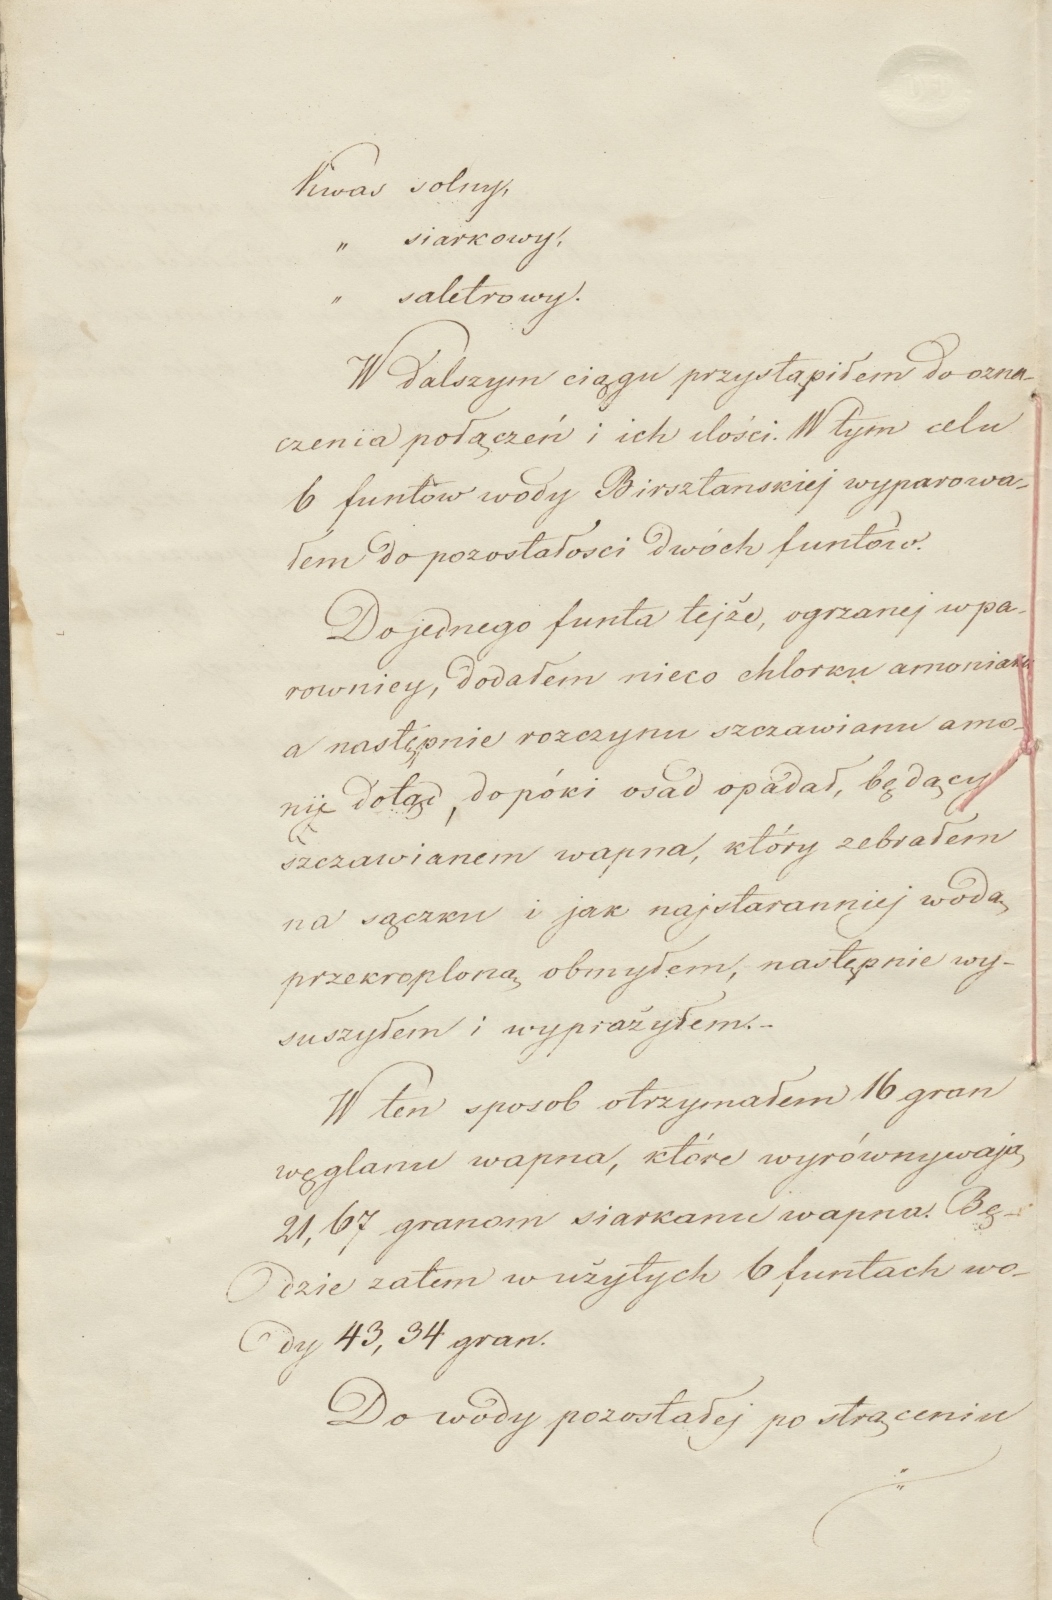 Kwas solny,
" siarkowy,
" saletrowy.
W dalszym ciągu przystąpiłem do ozna-
czenia połączeń i ich ilości. W tym celu
6 funtów wody Birsztanskiej wyparowa-
łem do pozostałosci dwóch funtów.
Do jednego funta tejże, ogrzanej w pa-
rownicy, dodałem nieco chlorku amoniaku
a następnie rozczynu szczawianu amo-
nii dotąd, dopóki osad opadał, będący
szczawianem wapna, który zebrałem
na sączku i jak najstaranniej wodą
przekroploną obmyłem, następnie wy-
suszyłem i wyprażyłem.-
W ten sposob otrzymałem 16 gran
węglanu wapna, które wyrównywają
21,67 granom siarkanu wapna. Bę-
dzie zatem w użytych 6 funtach wo-
dy 43,34 gran.
Do wody pozostałej po strąceniu